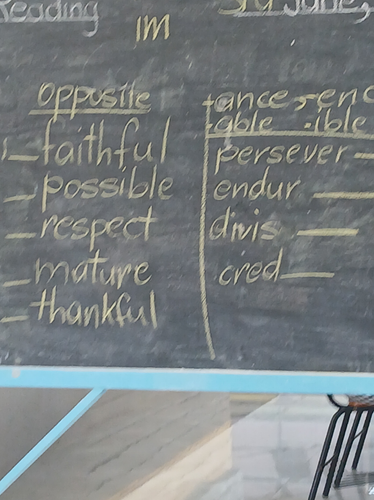 Reading 3rd June,
IM
Opposite
faithful
possible
respect
mature
thankful
-ance -enc
-able -ible
persever
endur
divis
cred